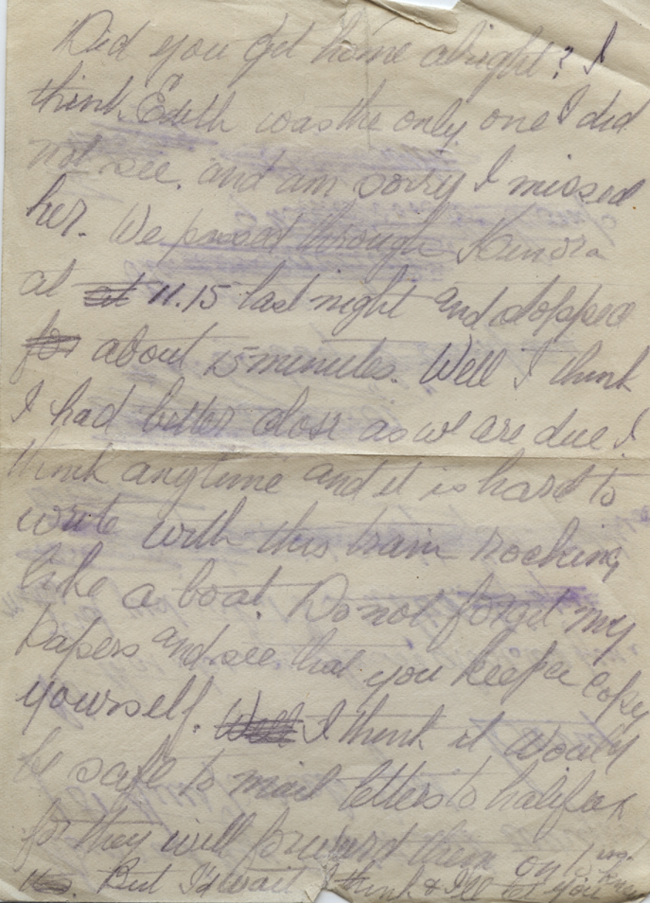 Did you get home alright? I
think Edith was the only one I did
not see. and am sorry I missed
her. We passed through Kenora
at at 11.15 last night and stopped
for about 15 minutes. Well I think
I had better close as we are due I
think anytime and it is hard to
write with this train rocking
like a boat. Do not forget my
Papers and see that you keep a copy
yourself. Well I think it would
be safe to mail letters to halifax
for they will forward them on to
us. But I'd wait I think & I'll let you know